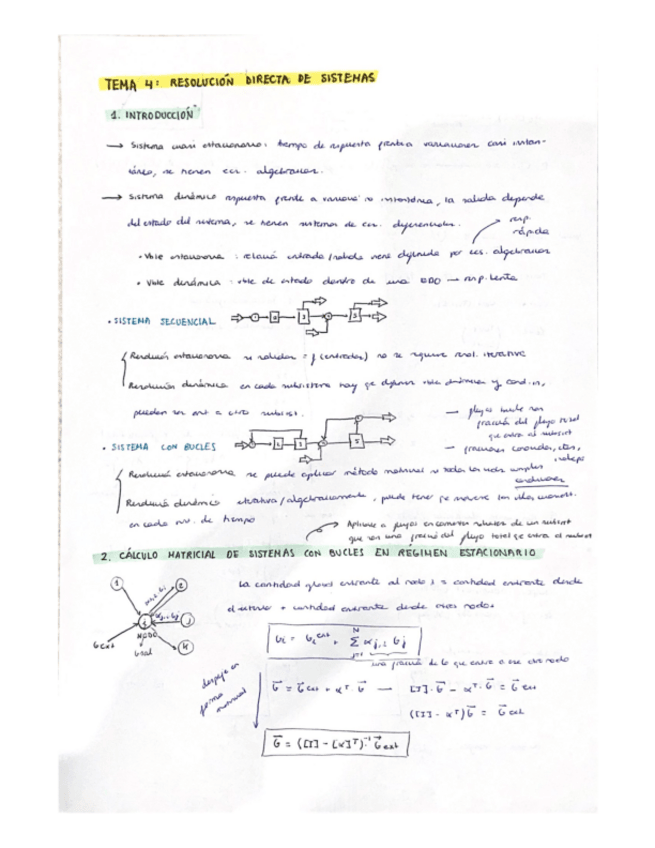 TEMA 4: RESOLUCIÓN DIRECTA DE SISTEMAS
1. INTRODUCCIÓN
→ Sistema cuasi estacionario: tiempo de respuesta frente a variaciones casi instan-
táneo, se tienen ec. algebraicas.
→ Sistema dinámico respuesta frente a variaciᵒ no instantánea, la salida depende
del estado del sistema, se tienen sistemas de ec. diferenciales.
resp. rápida
• Vble estacionaria: relación entrada/salida viene definida por ecs. algebraicas
• Vble dinámica: vble de estado dentro de una EDO — resp. lenta
• SISTEMA SECUENCIAL
Resolución estacionaria salidas = f(entradas) no se requiere resol. iterativa
Resolución dinámica en cada subsistema hay qe definir vble dinámica y cond. in,
pueden ser ent a otro subsist.
• SISTEMA CON BUCLES
— flujos bucle son
fracción del flujo total
qe entra al subsist
— fracciones conocidas, ctes,
Resolución estacionaria se puede aplicar método matricial si todos los nodos cumplen
condiciones
Resolución dinámica iterativa/algebraicamente, puede tener qe
en cada de tiempo
Aplicable a flujos de un subsist
que son una fracción del flujo total qe entra al subsist
2. CÁLCULO MATRICIAL DE SISTEMAS CON BUCLES EN RÉGIMEN ESTACIONARIO
1
2
i
j
k
NODO
Gext
Gsal
La cantidad global entrante al nodo i = cantidad entrante desde
el exterior + cantidad entrante desde otros nodos
Gi = Gi^ext + Σ_{j=1}^{N} αj,i Gj
una fracción de G que entra a ese otro nodo
despeje en
forma
matricial
G = Gext + α^T · G — [I]·G - α^T·G = Gext
([I] - α^T)G = Gext
G = ([I] - [α]^T)^-1 Gext